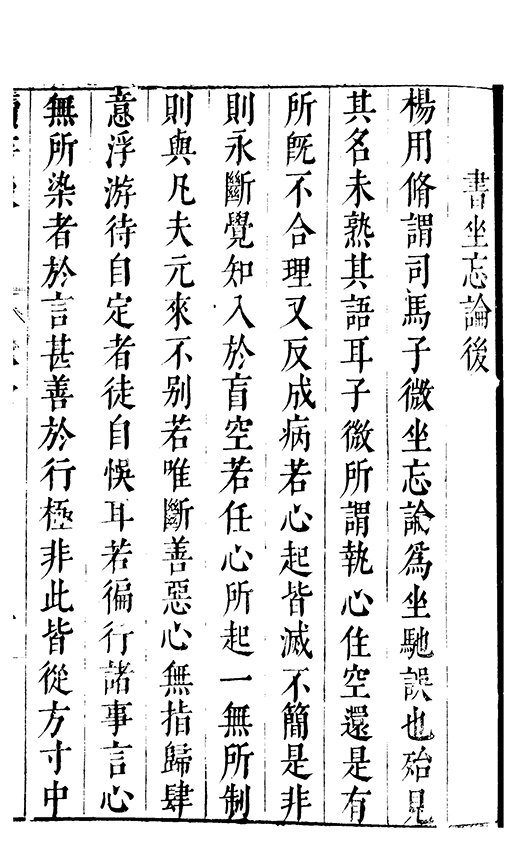 書坐忘論後
楊用脩謂司馬子微坐忘論爲坐馳誤也殆見
其名未熟其語耳子微所謂執心住空還是有
所旣不合理又反成病若心起皆滅不簡是非
則永斷覺知入於盲空若任心所起一無所制
則與凡夫元來不别若唯斷善惡心無指歸肆
意浮游待自定者徒自悞耳若徧行諸事言心
無所染者於言甚善於行極非此皆從方寸中